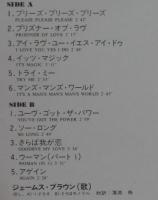 SIDE A
1. プリーズ・プリーズ・プリーズ
PLEASE PLEASE PLEASE 2'42"
2. プリズナー・オブ・ラヴ
PRISONER OF LOVE 2'
3. アイ・ラヴ・ユー・イエス・アイ・ドゥ
I LOVE YOU YES I DO 2'
4. イッツ・マジック
IT'S MAGIC
5. トライ・ミー
TRY ME 2'
6. マンズ・マンズ・ワールド
IT'S A MAN'S MAN'S MAN'S WORLD 2'
SIDE B
1. ユーヴ・ゴット・ザ・パワー
YOU'VE GOT THE POWER 2'
2. ソー・ロング
SO LONG 2'
3. さらば我が恋
GOODBYE MY LOVE
4. ウーマン(パート1)
WOMAN
5. アゲイン
AGAIN 2'
ジェームス・ブラウン(歌)